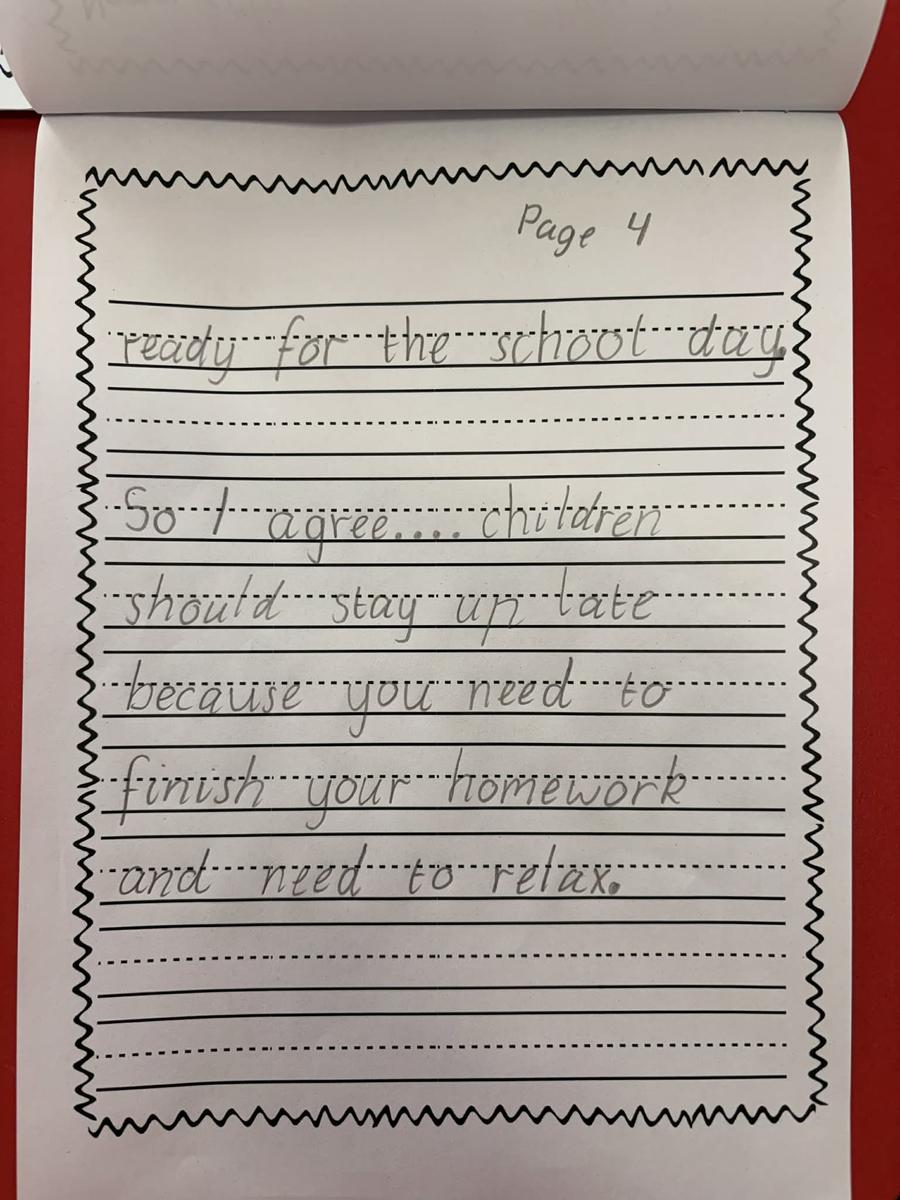 Page 4
ready for the school day.
So I agree.... children
should stay up late
because you need to
finish your homework
and need to relax.